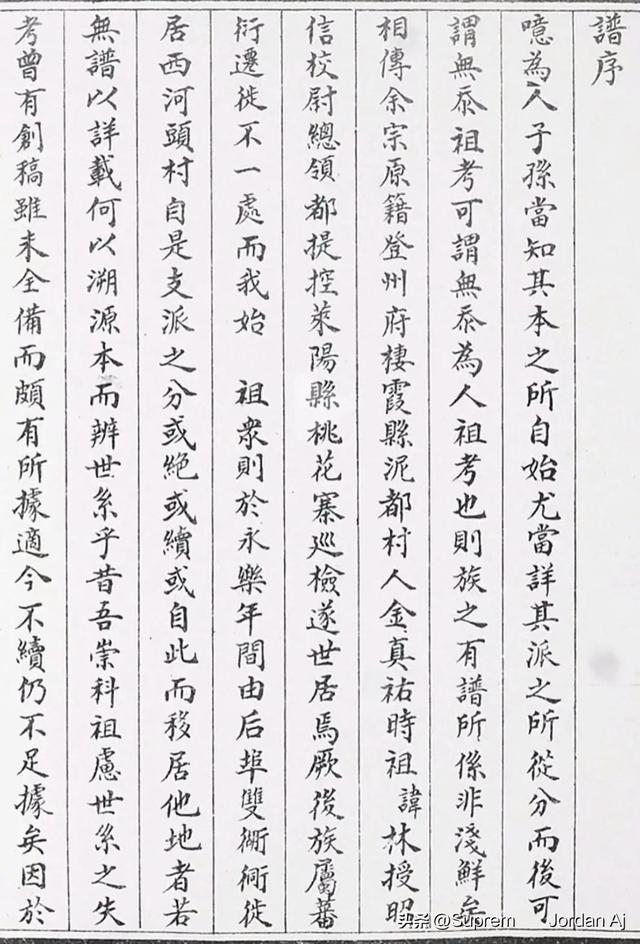 譜序
噫為人子孫當知其本之所自始尤當詳其派之所從分而後可
謂無忝祖考可謂無忝為人祖考也則族之有譜所係非淺鮮矣
相傳余宗原籍登州府棲霞縣泥都村人金真祐時祖諱林授昭
信校尉總領都提控萊陽縣桃花寨巡檢遂世居焉厥後族屬蕃
衍遷徙不一處而我始 祖衆則於永樂年間由后埠雙衖衕徙
居西河頭村自是支派之分或絕或續或自此而移居他地者若
無譜以詳載何以溯源本而辨世系乎昔吾崇科祖慮世系之失
考曾有創稿雖未全備而頗有所據適今不續仍不足據矣因於
头条 @Suprem Jordan Aj